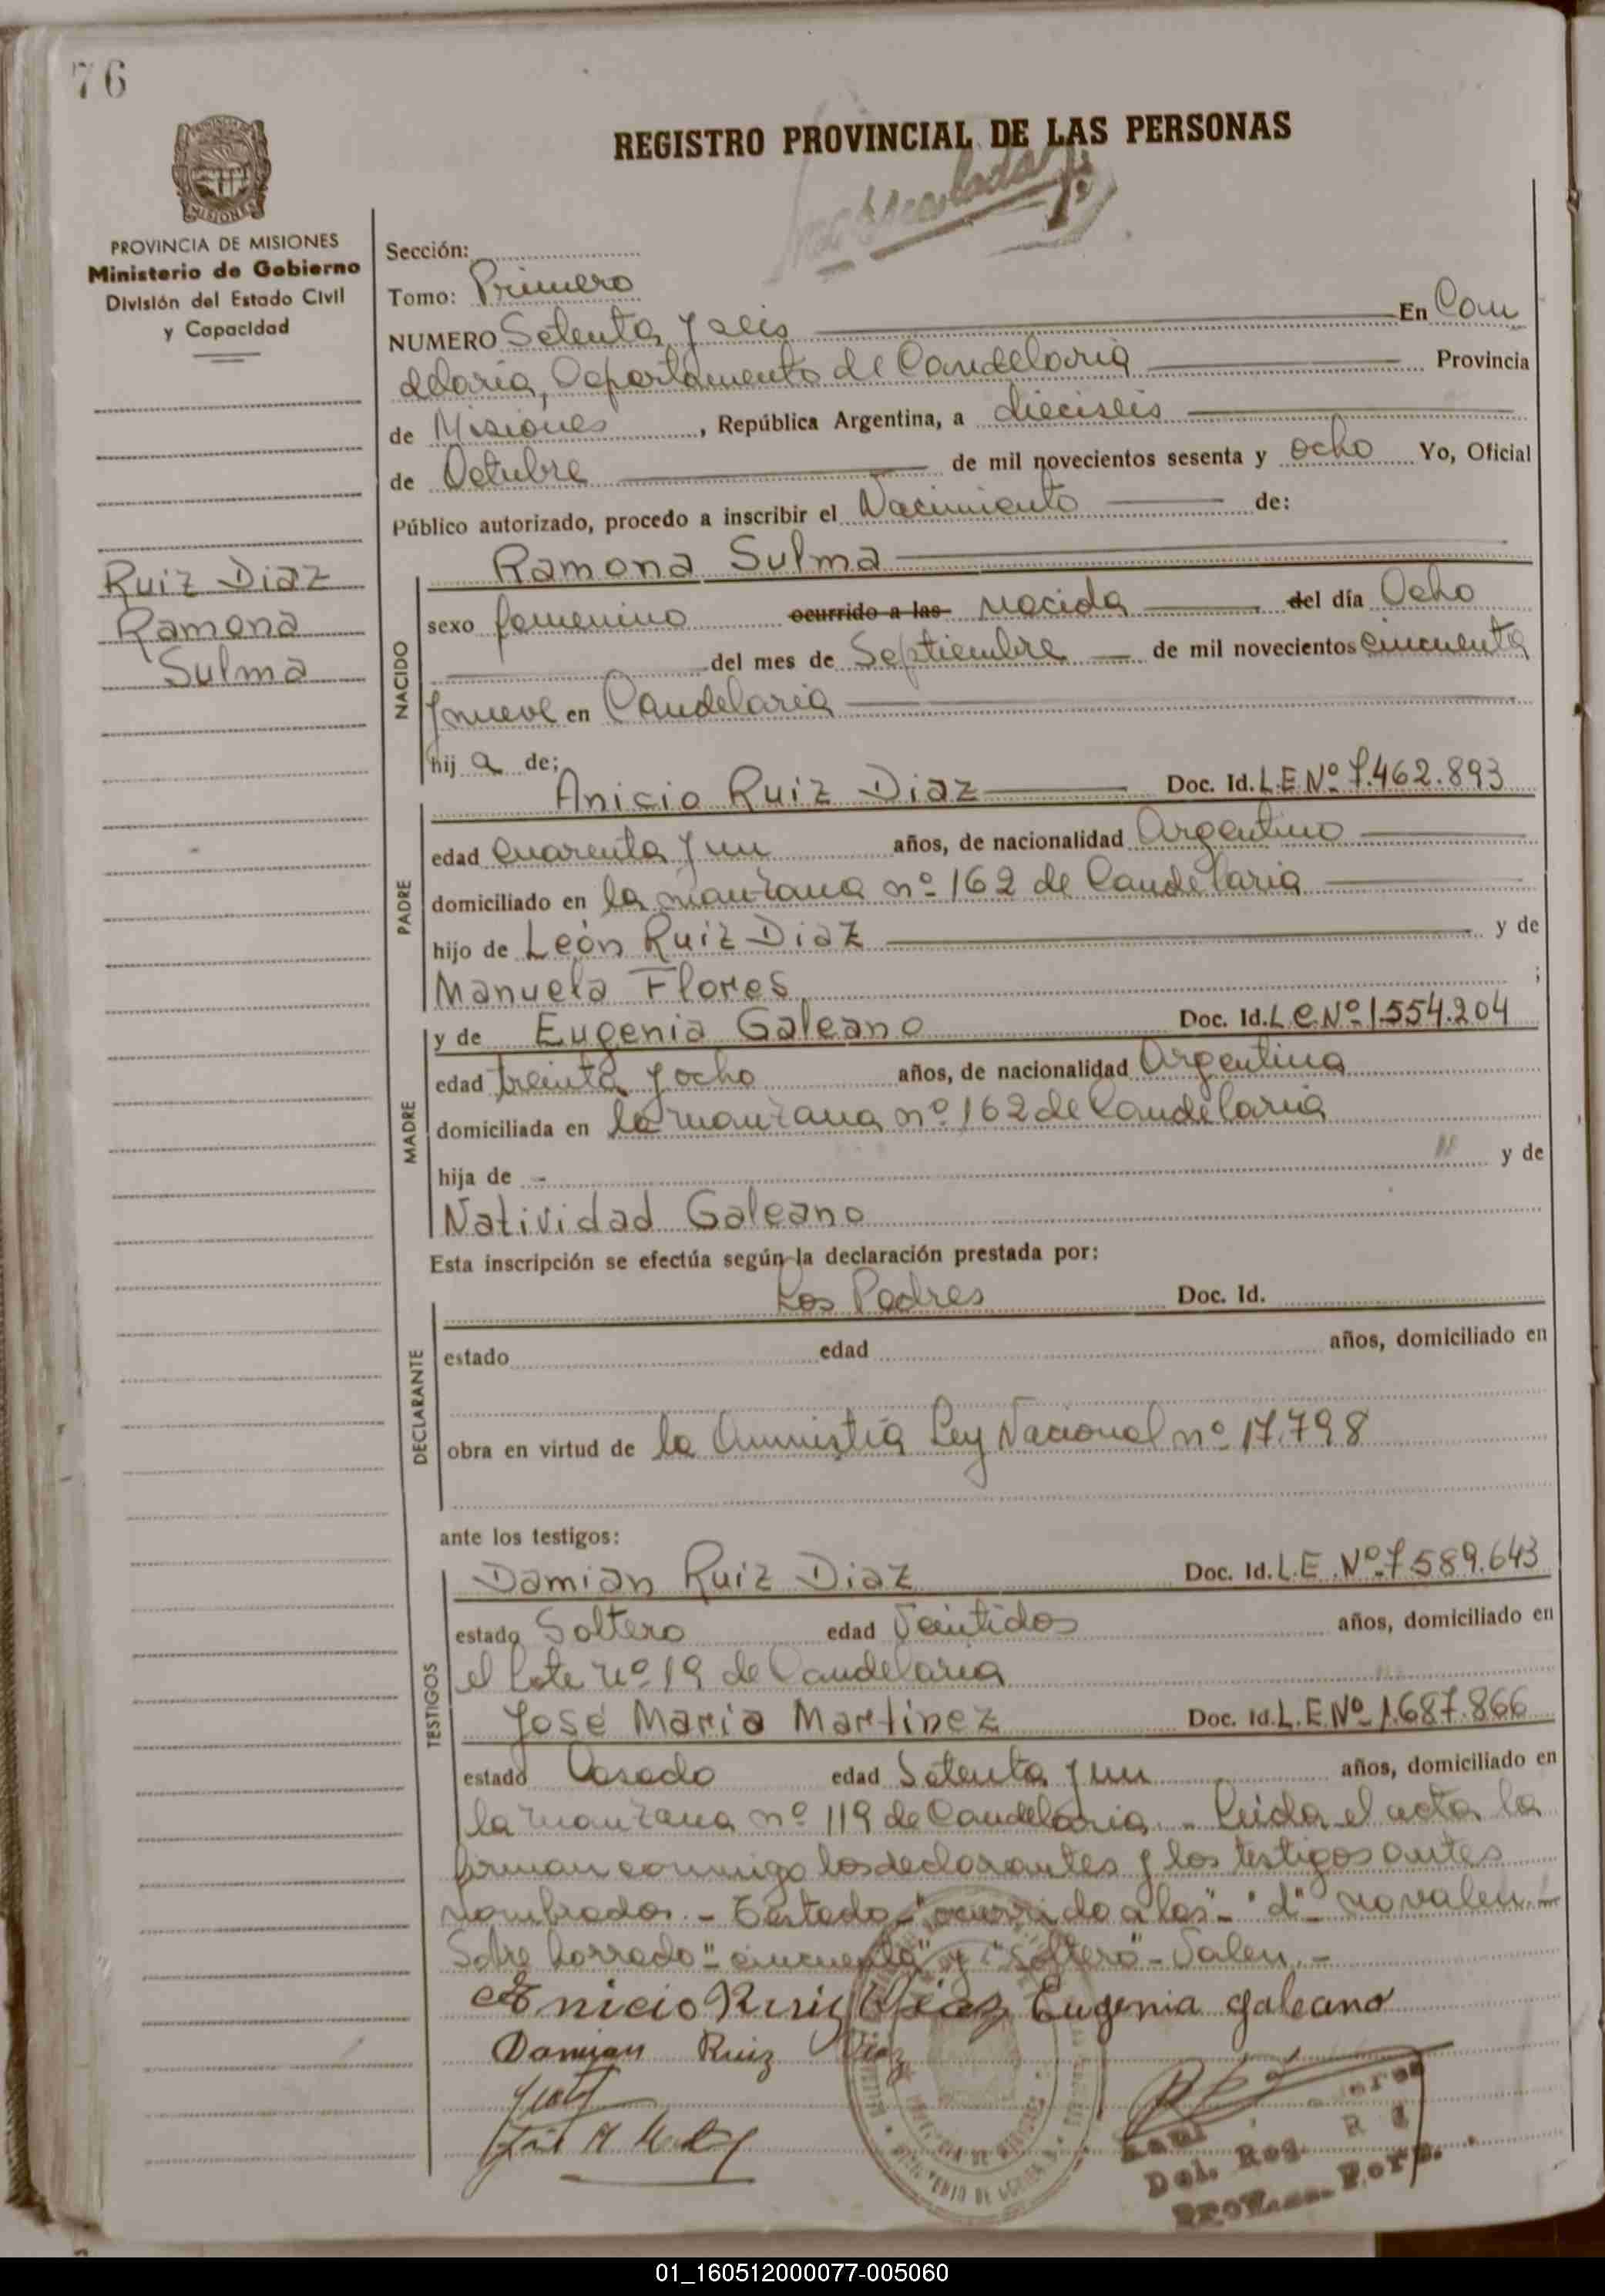 76
REGISTRO PROVINCIAL DE LAS PERSONAS
PROVINCIA DE MISIONES
Ministerio de Gobierno
División del Estado Civil
y Capacidad
Ruiz Diaz
Ramona
Sulma
Sección:
Tomo: Primero
NUMERO Setenta y seis En Can
delaria, Departamento de Candelaria Provincia
de Misiones, República Argentina, a dieciseis
de Octubre de mil novecientos sesenta y ocho Yo, Oficial
Público autorizado, procedo a inscribir el Nacimiento de:
Ramona Sulma
NACIDO
sexo femenino ocurrido a las nacida del día Ocho
del mes de Septiembre de mil novecientos cincuenta
y nueve en Candelaria
hij a de:
Anicio Ruiz Diaz Doc. Id. L.E. Nº 7.462.893
PADRE
edad cuarenta y un años, de nacionalidad Argentino
domiciliado en la manzana nº 162 de Candelaria
hijo de León Ruiz Diaz y de
Manuela Flores ;
y de Eugenia Galeano Doc. Id. L.C. Nº 1.554.204
MADRE
edad treinta y ocho años, de nacionalidad Argentina
domiciliada en la manzana nº 162 de Candelaria
hija de - y de
Natividad Galeano
Esta inscripción se efectúa según la declaración prestada por:
Los Padres Doc. Id.
DECLARANTE
estado edad años, domiciliado en
obra en virtud de la Amnistía Ley Nacional nº 17.798
ante los testigos:
Damian Ruiz Diaz Doc. Id. L.E. Nº 7.589.643
TESTIGOS
estado Soltero edad Veintidos años, domiciliado en
el Lote nº 19 de Candelaria
José Maria Martinez Doc. Id. L.E. Nº 1.687.866
estado Casado edad Setenta y un años, domiciliado en
la manzana nº 119 de Candelaria. - Leida el acta la
firman conmigo los declarantes y los testigos antes
nombrados. - Testado - "ocurrido a las" - "d" - no valen. -
Sobre borrado "cincuenta" y "Soltero" - Valen. -
Anicio Ruiz Diaz Eugenia galeano
Damian Ruiz Diaz
Del. Reg.
01_160512000077-005060